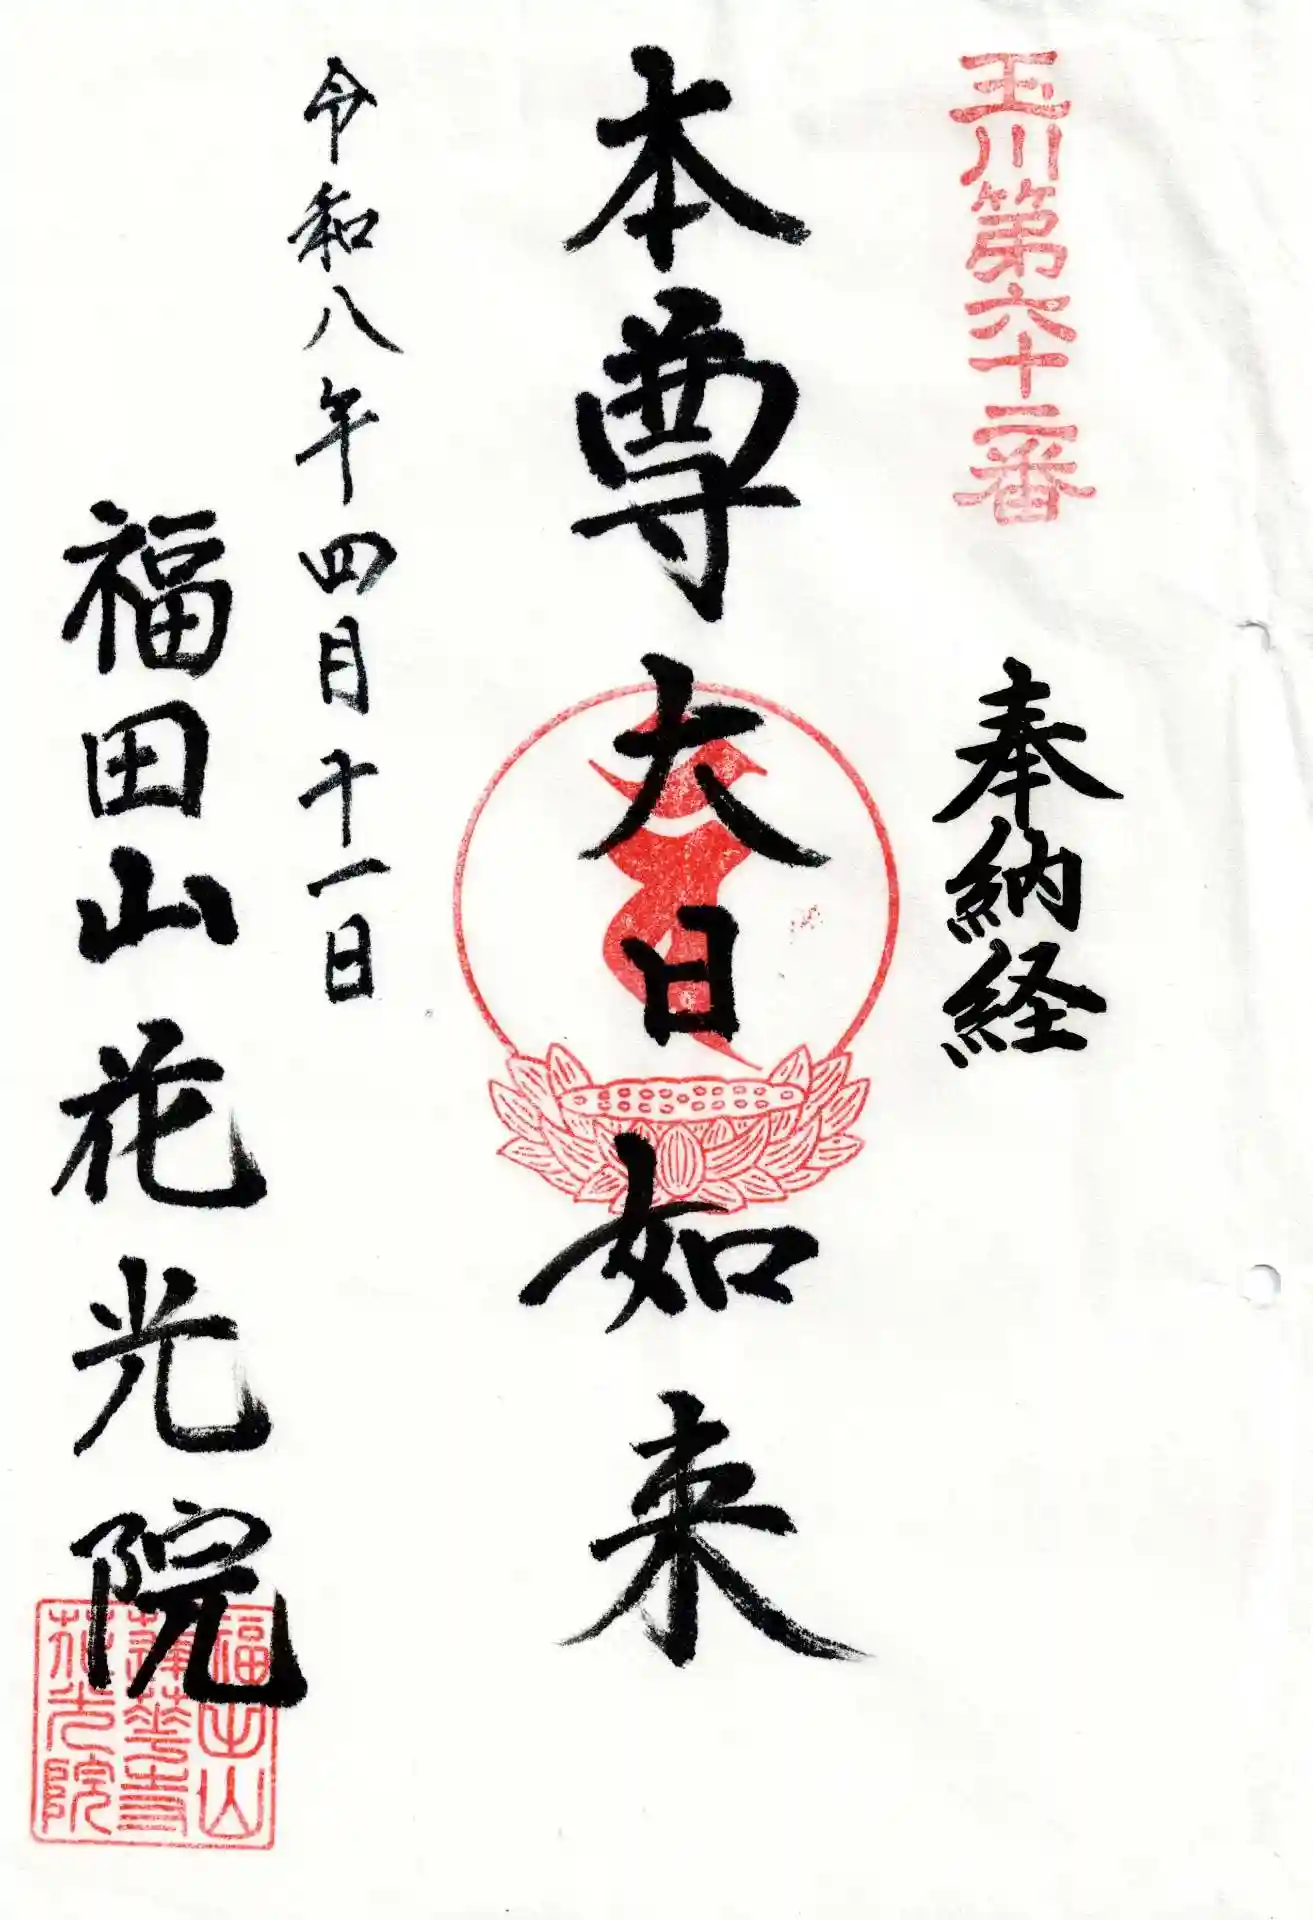 玉川第六十二番
奉納経
本尊大日如来
令和八年四月十一日
福田山花光院
福田山
蓮華寺
花光院